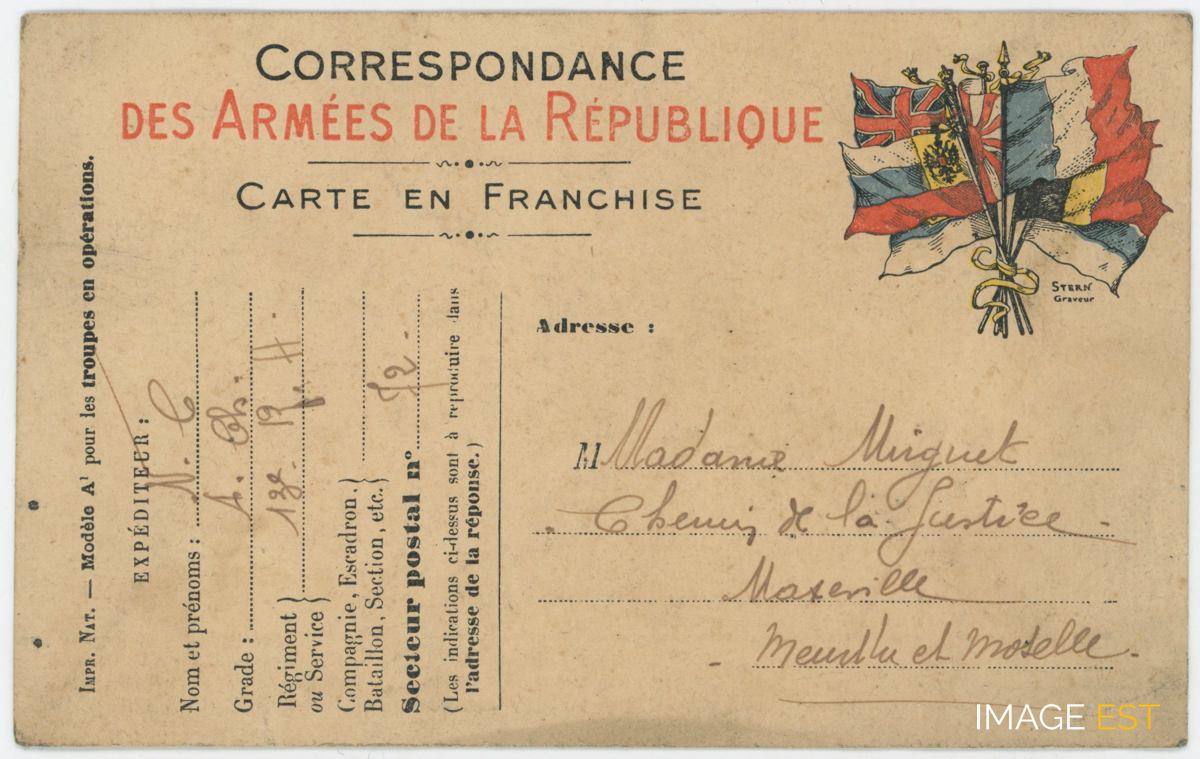 CORRESPONDANCE
DES ARMÉES DE LA RÉPUBLIQUE
CARTE EN FRANCHISE
STERN
Graveur
IMPR. NAT. — Modèle A¹ pour les troupes en opérations.
EXPÉDITEUR :
Nom et prénoms :
Grade :
Régiment
ou Service }
Compagnie, Escadron,
Bataillon, Section, etc. }
Secteur postal n° 72.
(Les indications ci-dessus sont à reproduire dans
l'adresse de la réponse.)
Adresse :
M Madame Mirguet
Chemin de la Justice
Maxeville
Meurthe et Moselle.
IMAGE EST